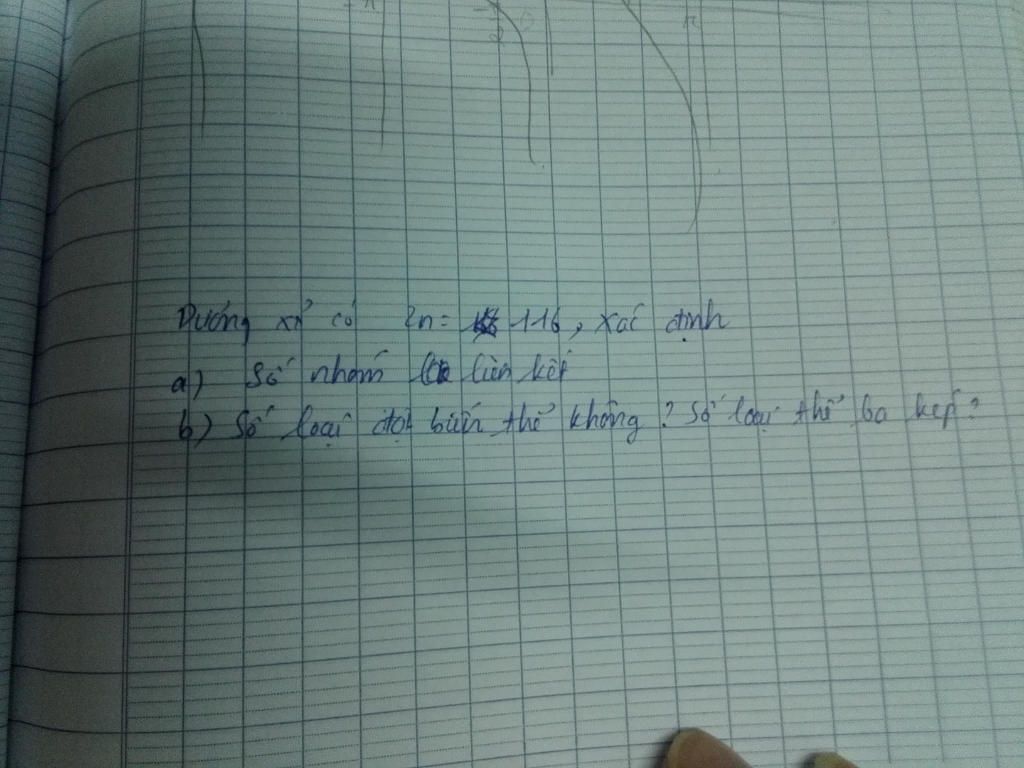 Dương xỉ có 2n = 116, xác định
a) Số nhóm liên kết
b) Số loại đột biến thể không? Số loại thể ba kép?